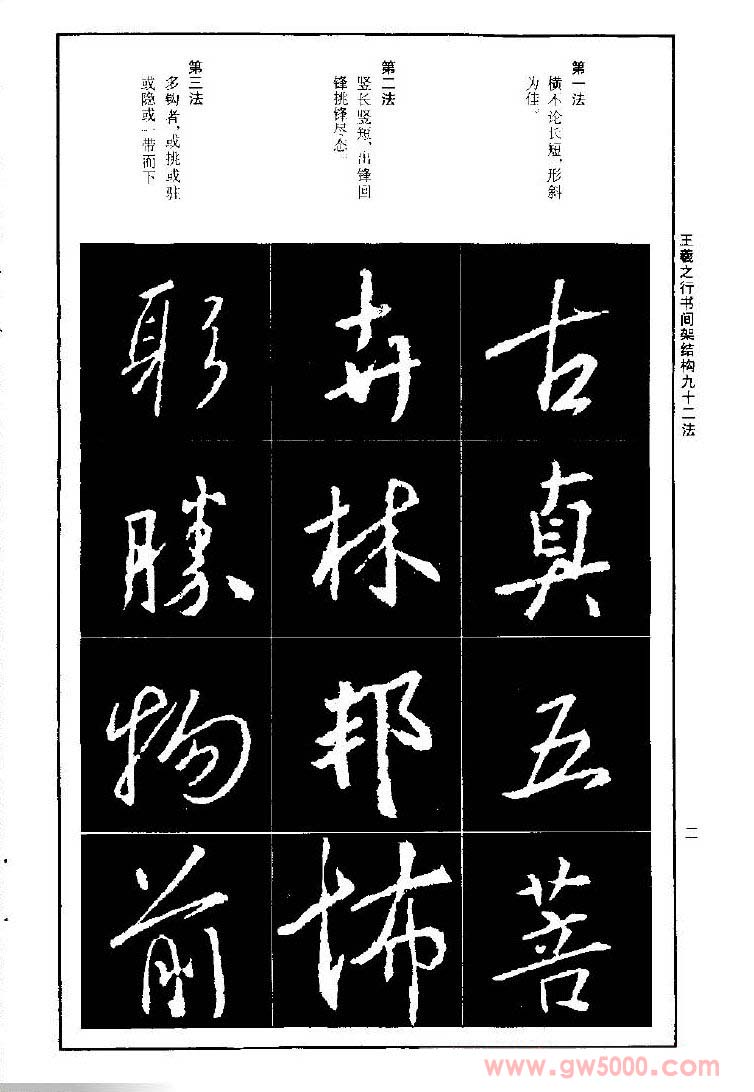 王羲之行书间架结构九十二法
第一法
横不论长短，形斜
为佳。
古
真
五
菩
第二法
竖长竖短，出锋回
锋挑锋尽态。
卉
林
邦
怖
第三法
多钩者，或挑或驻
或隐或一带而下
躬
胜
物
前
二
www.gw5000.com